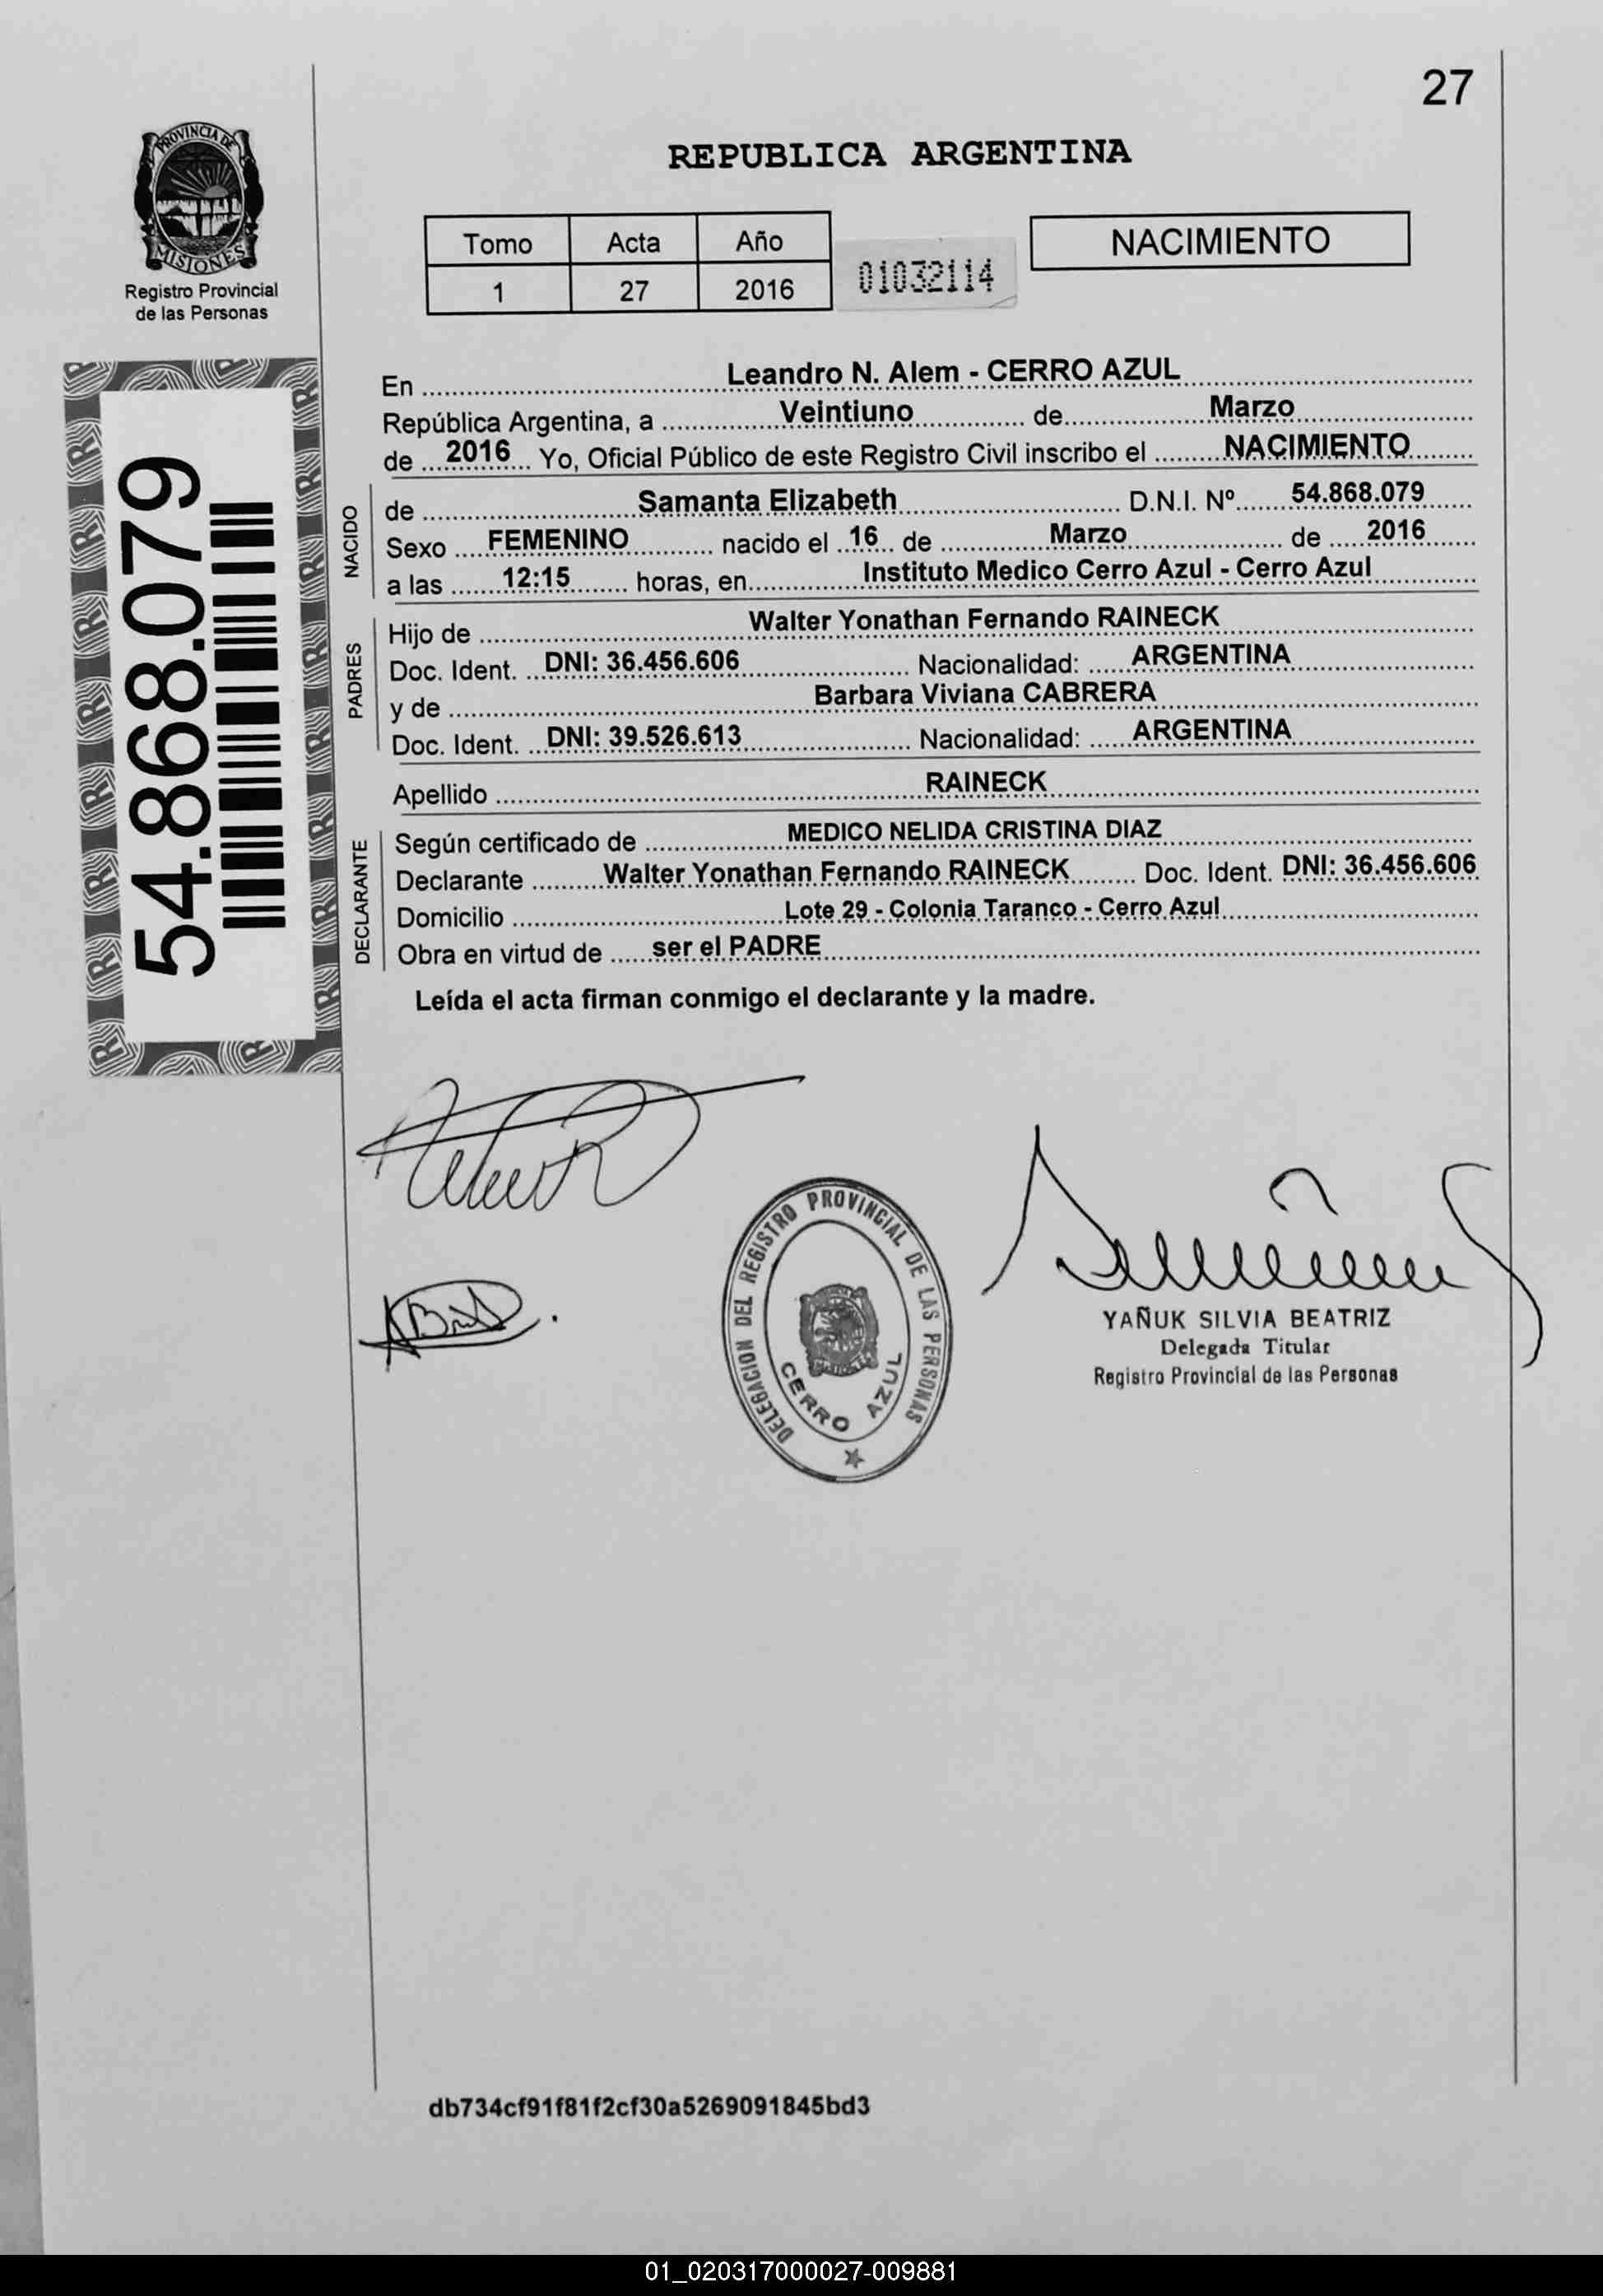 27
PROVINCIA DE
MISIONES
Registro Provincial
de las Personas
REPUBLICA ARGENTINA
Tomo Acta Año
1 27 2016
01032114
NACIMIENTO
54.868.079
En Leandro N. Alem - CERRO AZUL
República Argentina, a Veintiuno de Marzo
de 2016 Yo, Oficial Público de este Registro Civil inscribo el NACIMIENTO
NACIDO
de Samanta Elizabeth D.N.I. Nº 54.868.079
Sexo FEMENINO nacido el 16 de Marzo de 2016
a las 12:15 horas, en Instituto Medico Cerro Azul - Cerro Azul
PADRES
Hijo de Walter Yonathan Fernando RAINECK
Doc. Ident. DNI: 36.456.606 Nacionalidad: ARGENTINA
y de Barbara Viviana CABRERA
Doc. Ident. DNI: 39.526.613 Nacionalidad: ARGENTINA
Apellido RAINECK
DECLARANTE
Según certificado de MEDICO NELIDA CRISTINA DIAZ
Declarante Walter Yonathan Fernando RAINECK Doc. Ident. DNI: 36.456.606
Domicilio Lote 29 - Colonia Taranco - Cerro Azul
Obra en virtud de ser el PADRE
Leída el acta firman conmigo el declarante y la madre.
DELEGACION DEL REGISTRO PROVINCIAL DE LAS PERSONAS
CERRO AZUL
YAÑUK SILVIA BEATRIZ
Delegada Titular
Registro Provincial de las Personas
db734cf91f81f2cf30a5269091845bd3
01_020317000027-009881